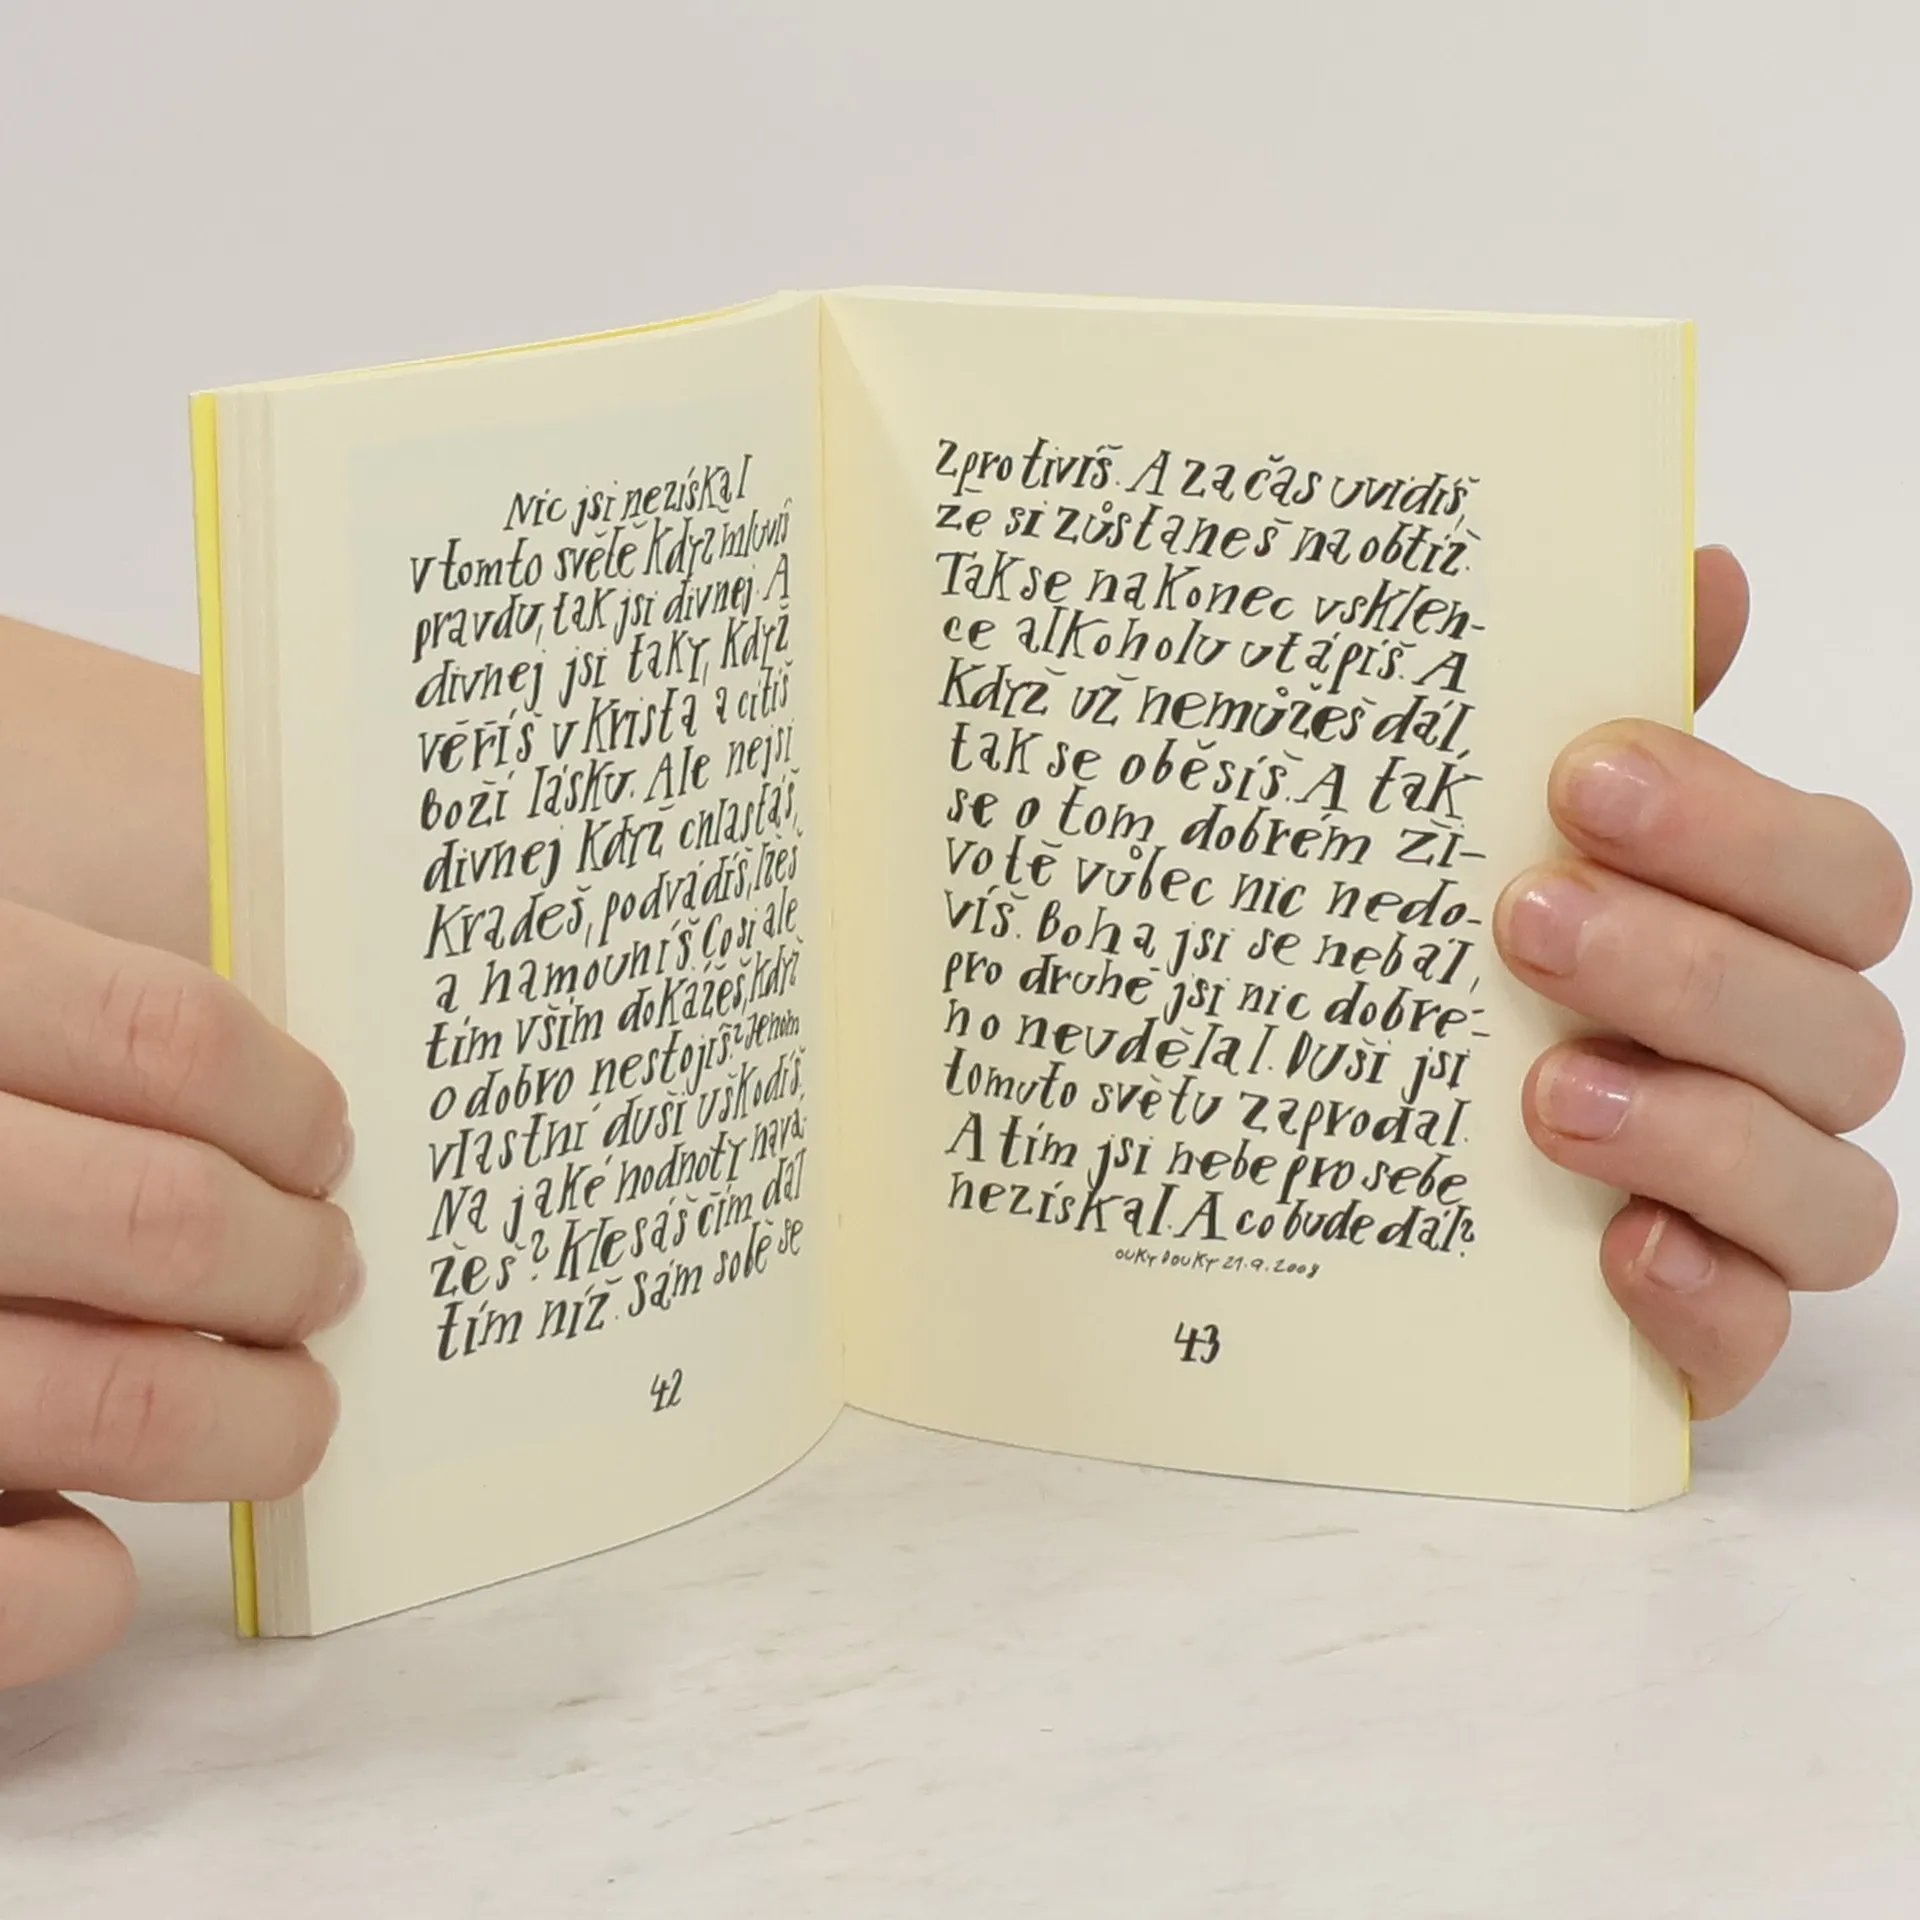 Nic jsi nezískal
v tomto světě když mluvíš
pravdu, tak jsi divnej. A
divnej jsi taky, když
věříš v Krista a cítíš
Boží lásku. Ale nejsi
divnej když chlastáš,
kradeš, podvádíš, lžeš
a hamouníš. Co si ale
tím vším dokážeš, když
o dobro nestojíš? Jenom
vlastní duši uškodíš.
Na jaké hodnoty navá-
žeš? Klesáš čím dál
tím níž. Sám sobě se
42
zprotivíš. A za čas uvidíš,
že si zůstaneš na obtíž.
Tak se nakonec vsklen-
ce alkoholu utápíš. A
když už nemůžeš dál,
tak se oběsíš. A tak
se o tom dobrém ži-
votě vůbec nic nedo-
víš. Boha jsi se nebál,
pro druhé jsi nic dobré-
ho neudělal. Duši jsi
tomuto světu zaprodal.
A tím jsi nebe pro sebe
nezískal. A co bude dál?
OUKY DOUKY 21.9.2008
43